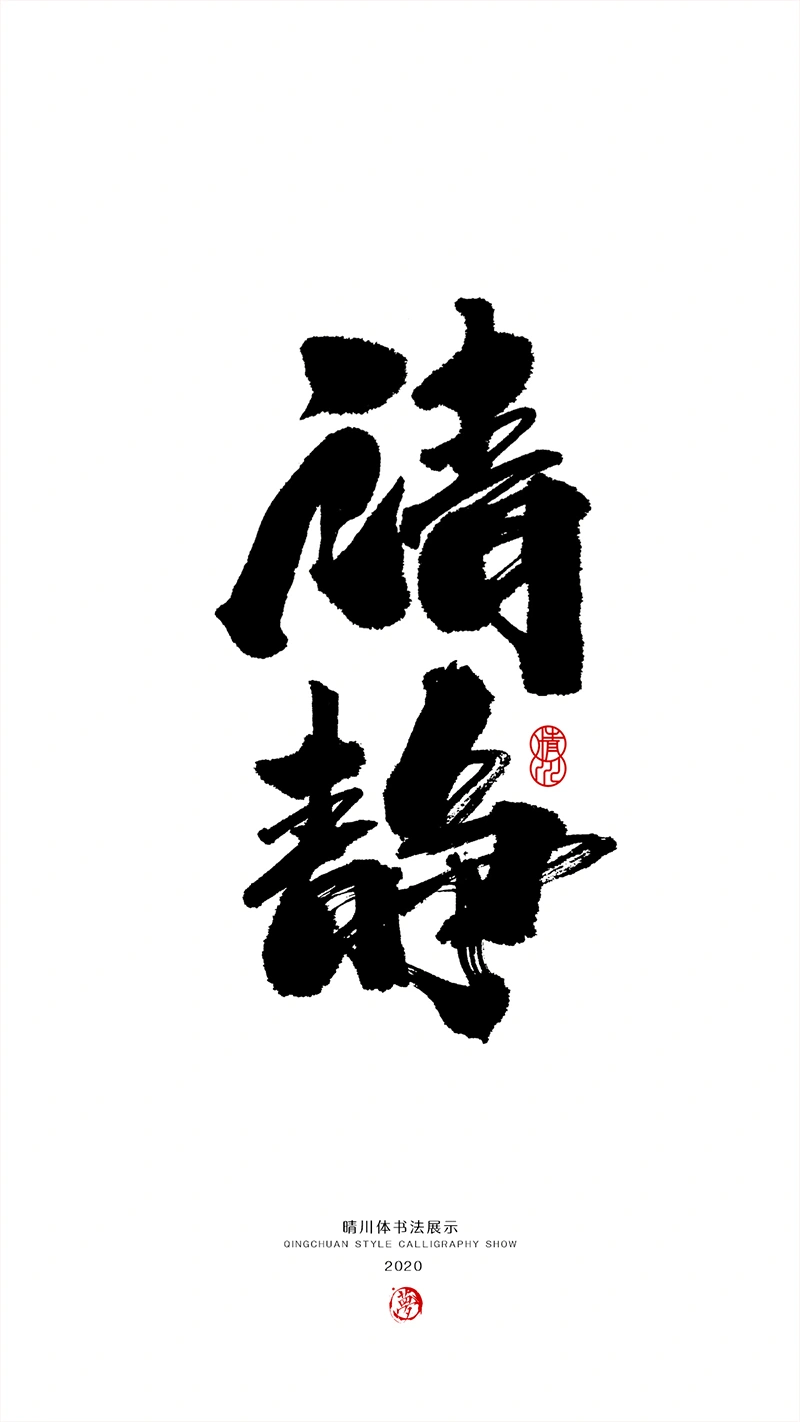 清静
晴川
晴川体书法展示
QINGCHUAN STYLE CALLIGRAPHY SHOW
2020
夢